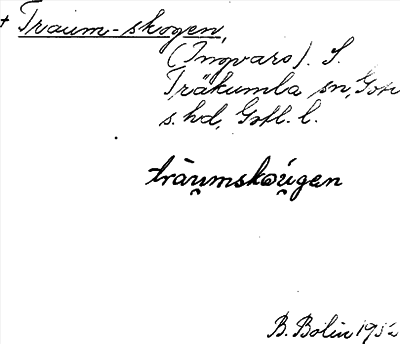 + Traum-skogen,
(Ingvars). S.
Träkumla sn, Gotl.
s. hd, Gotl. l.
träu̯mskơu̯gen
B. Bolin 1932